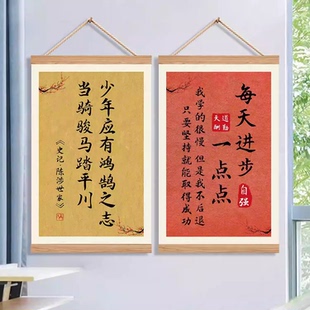 少年应有鸿鹄之志
当骑骏马踏平川
《史记 陈涉世家》
每天进步
一点点
自强
天道
酬勤
我学的很慢 但是我不后退
只要坚持就能取得成功